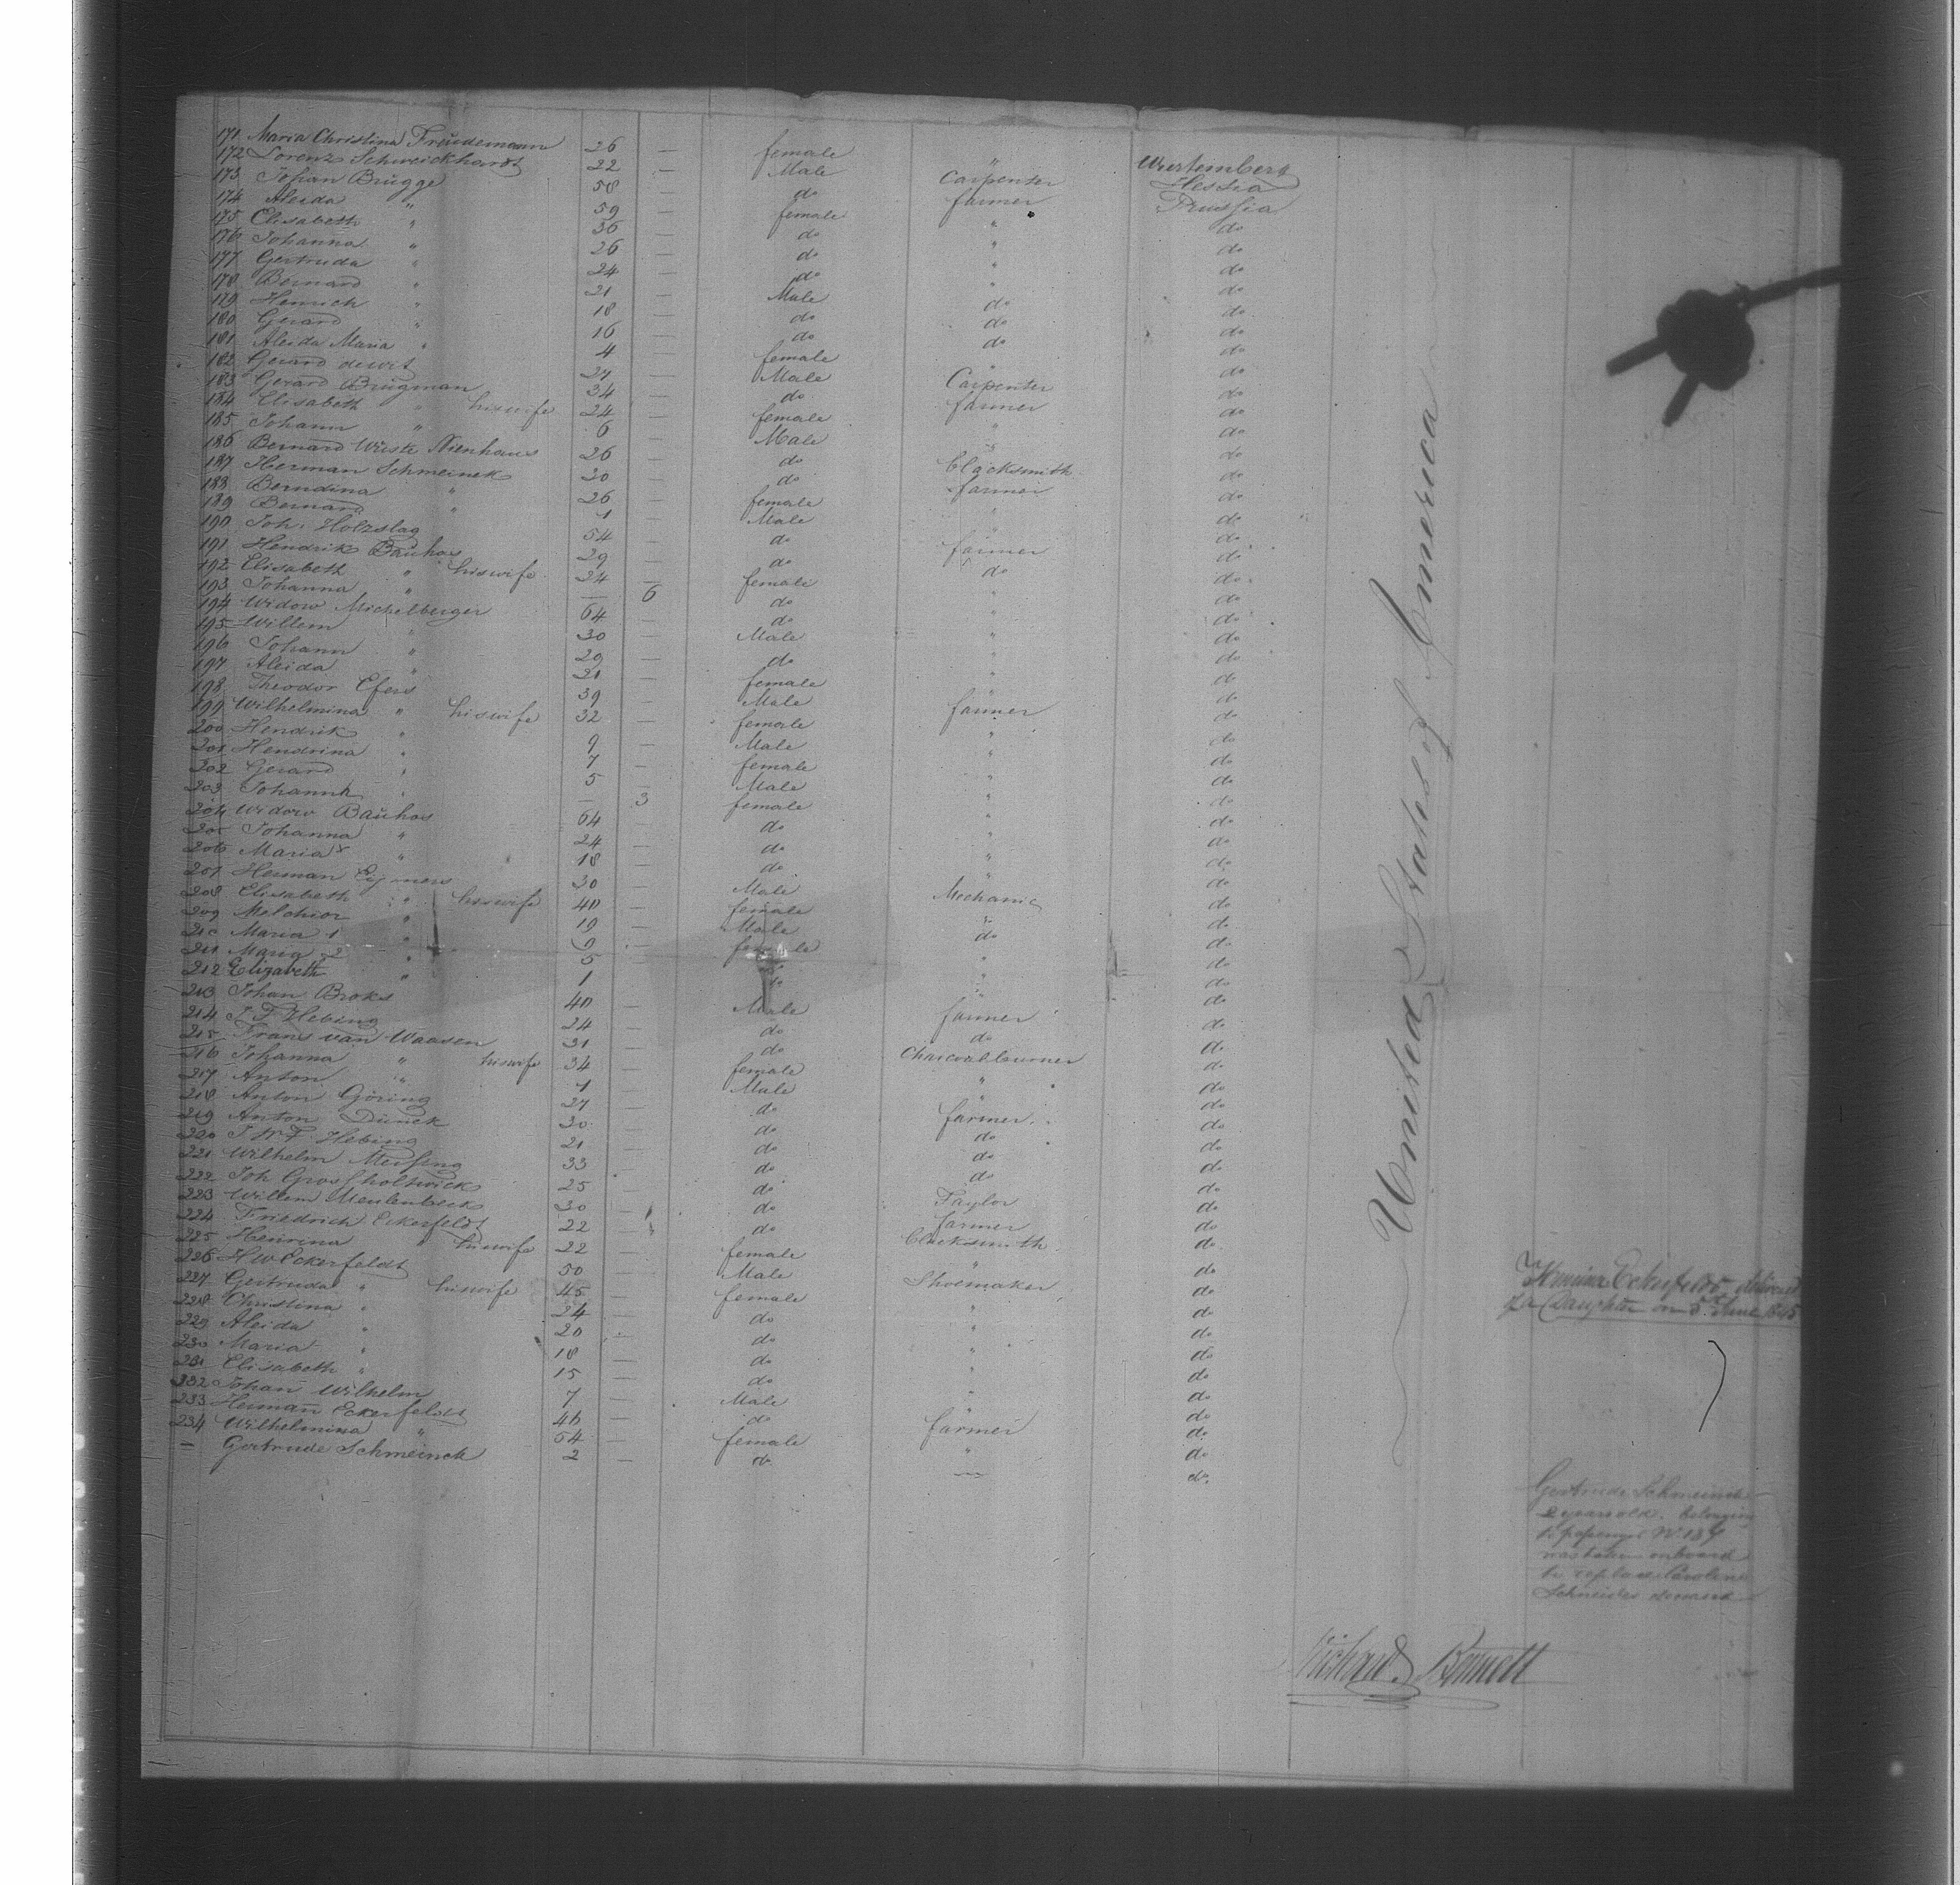 171 Maria Christina Freudemann 26 — female " Wurtemberg
172 Lorenz Schweickhardt 22 — Male Carpenter Hessia
173 Johan Brügge 58 — do farmer Prussia
174 Aleida " 59 — female " do
175 Elisabeth " 36 — do " do
176 Johanna " 26 — do " do
177 Gertruda " 24 — do " do
178 Bernard " 21 — Male do do
179 Henrich " 18 — do do do
180 Gerard " 16 — do do do
181 Aleida Maria " 4 — female " do
182 Gerard de Wit 27 — Male Carpenter do
183 Gerard Brügman 34 — do farmer do
184 Elisabeth " his wife 24 — female " do
185 Johann " 6 — Male " do
186 Bernard Wüste Nienhaus 26 — do Clacksmith do
187 Herman Schmeinck 30 — do farmer do
188 Berndina " 26 — female " do
189 Bernard " 1 — Male " do
190 Joh. Holzslag 54 — do farmer do
191 Hendrik Bauhos 29 — do do do
192 Elisabeth " his wife 24 — female " do
193 Johanna " — 6 do " do
194 Widow Michelberger 64 — do " do
195 Willem " 30 — Male " do
196 Johann " 29 — do " do
197 Aleida " 21 — female " do
198 Theodor Efers 39 — Male farmer do
199 Wilhelmina " his wife 32 — female " do
200 Hendrik " 9 — Male " do
201 Hendrina " 7 — female " do
202 Gerard " 5 — Male " do
203 Johanna " — 3 female " do
204 Widow Bauhos 64 do " do
205 Johanna " 24 — do " do
206 Maria " 18 — do " do
207 Herman 30 — Male Mechanic do
208 Elisabeth " his wife 40 — female " do
209 Melchior " 19 — Male do do
210 Maria 1 " 9 — female " do
211 Maria 2 " 5 do " do
212 Elizabeth " 1 do " do
213 Johan Broks 40 — Male farmer do
214 J. F. Hebing 24 — do do do
215 Frans van Waasen 31 — do Charcoalburner do
216 Johanna " his wife 34 — female " do
217 Anton " 1 — Male " do
218 Anton Göring 27 — do farmer do
219 Anton Dünck 30 — do do do
220 J. W. F. Hebing 21 — do do do
221 Wilhelm Meising 33 — do do do
222 Joh Grossholtwick 25 — do Taylor do
223 Willem Meulenbeck 30 — do farmer do
224 Friedrich Eckerfeldt 22 do Clacksmith do
225 Henrina " his wife 22 — female " do
226 H W Eckerfeldt 50 — Male Shoemaker do
227 Gertruda " his wife 45 — female " do
228 Christina " 24 — do " do
229 Aleida " 20 — do " do
230 Maria " 18 — do " do
231 Elisabeth " 15 — do " do
232 Johan Wilhelm 7 — Male " do
233 Herman Eckerfeldt 46 — do farmer do
234 Wilhelmina " 54 — female " do
— Gertrude Schmeinck 2 — do — do.
United States of America
Eckerfeldt delivered
of a Daughter on 5 June 1845
Gertrude Schmeinck
2 years old, belonging
to passenger No 187
was taken onboard
to replace Caroline
Schneider
Richard Bennett